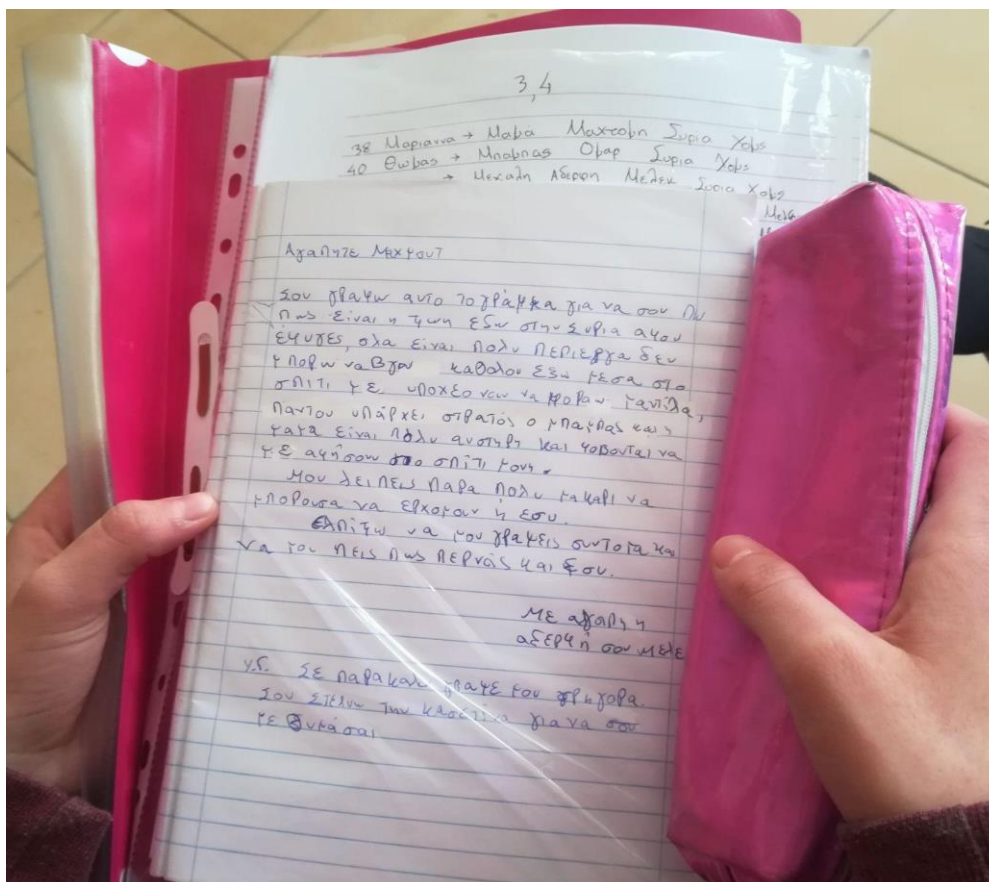 3,4
38 Μαριαννα → Μαμά Μαχτομπη Συρια Χομς
40 Θωμας → Μπαμπας Ομαρ Συρια Χομς
→ Μεγαλη Αδερφη Μελεκ Συρια Χομς
Αγαπητε Μαχμουτ
Σου γραφω αυτο το γράμμα για να σου πω
πως είναι η ζωη εδω στην Συρια αφου
έφυγες, ολα είναι πολυ περιεργα δεν
μπορω να βγω καθολου εξω μεσα στο
σπιτι με υποχεονουν να φοραω μαντιλα,
παντου υπάρχει στρατός ο μπαμπας και η
μαμα είναι πολυ αυστηρη και φοβονται να
με αφησουν στο σπιτι μονη.
Μου λειπεις παρα πολυ μακαρι να
μπορουσα να ερχομουν ή εσυ.
Ελπιζω να μου γραψεις συντομα και
να μου πεις πως περνάς και εσυ.
Με αγαπη η
αδερφή σου Μελε
υ.Γ. Σε παρακαλω γραψε μου γρηγορα.
Σου στελνω την κασετίνα για να σου
με θυμάσαι